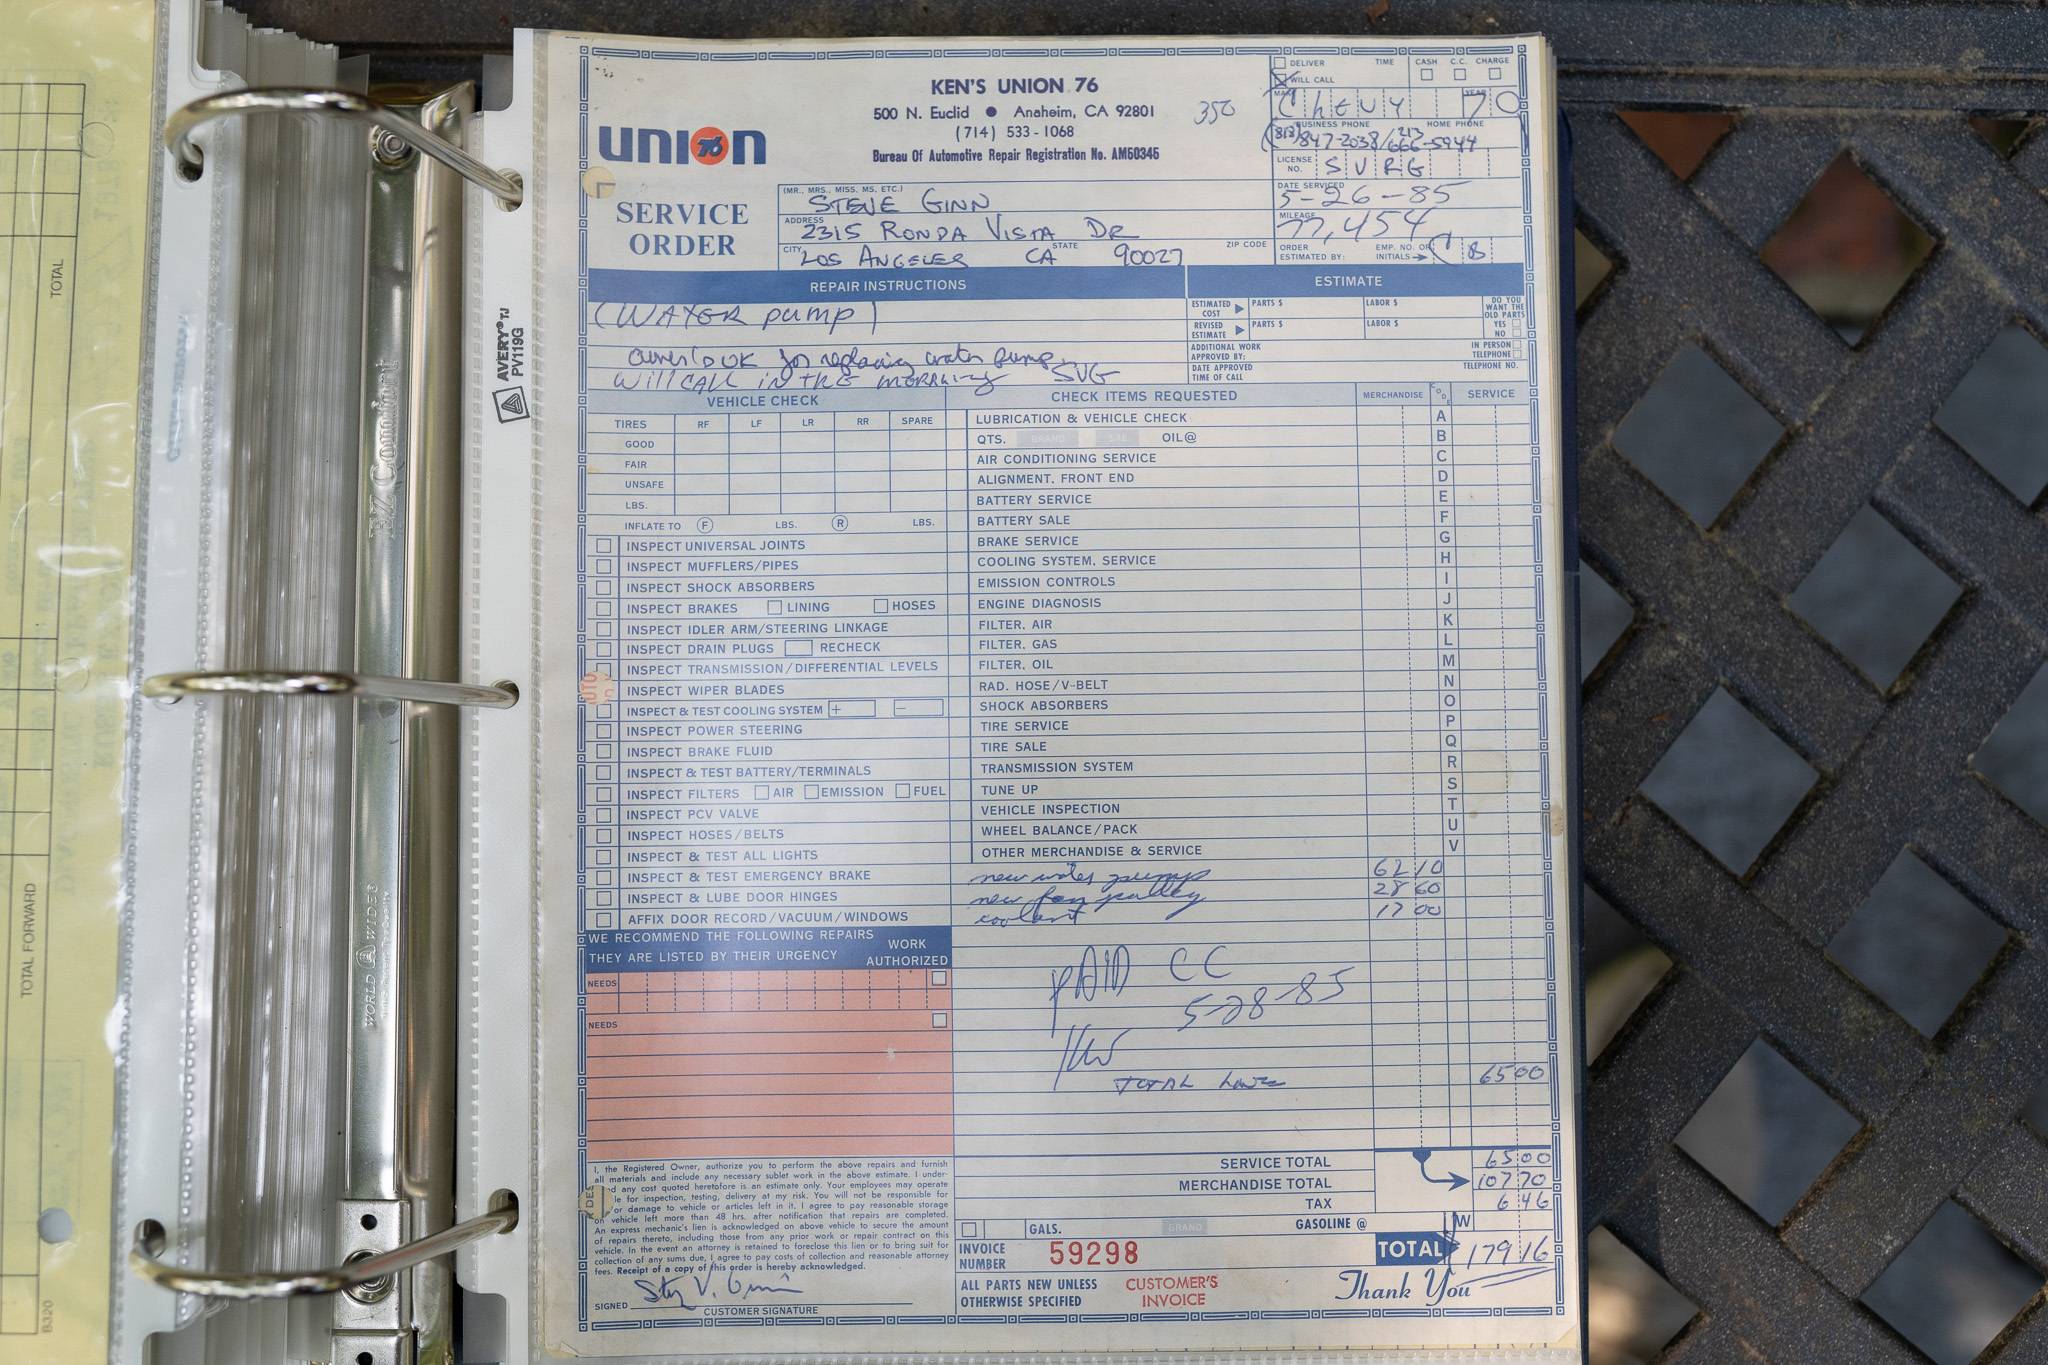 KEN'S UNION 76
500 N. Euclid ● Anaheim, CA 92801
(714) 533-1068
Bureau Of Automotive Repair Registration No. AM50345
350
union 76
DELIVER TIME CASH C.C. CHARGE
WILL CALL
MAKE Chevy YEAR 70
BUSINESS PHONE HOME PHONE
(818) 847-2038/213 666-5944
LICENSE NO. SVRG
DATE SERVICED 5-26-85
MILEAGE 77,454
ORDER ESTIMATED BY: EMP. NO. OR INITIALS → CB
SERVICE ORDER
(MR., MRS., MISS, MS, ETC.)
STEVE GINN
ADDRESS 2315 RONDA VISTA DR
CITY LOS ANGELES STATE CA ZIP CODE 90027
REPAIR INSTRUCTIONS
(WATER pump)
for replacing water pump
will CALL in THE MORNING SVG
ESTIMATE
ESTIMATED COST PARTS $ LABOR $
REVISED ESTIMATE PARTS $ LABOR $
DO YOU WANT THE OLD PARTS YES NO
ADDITIONAL WORK APPROVED BY: IN PERSON TELEPHONE
DATE APPROVED TIME OF CALL TELEPHONE NO.
VEHICLE CHECK
TIRES RF LF LR RR SPARE
GOOD
FAIR
UNSAFE
LBS.
INFLATE TO F LBS. R LBS.
INSPECT UNIVERSAL JOINTS
INSPECT MUFFLERS/PIPES
INSPECT SHOCK ABSORBERS
INSPECT BRAKES LINING HOSES
INSPECT IDLER ARM/STEERING LINKAGE
INSPECT DRAIN PLUGS RECHECK
INSPECT TRANSMISSION/DIFFERENTIAL LEVELS
INSPECT WIPER BLADES
INSPECT & TEST COOLING SYSTEM + −
INSPECT POWER STEERING
INSPECT BRAKE FLUID
INSPECT & TEST BATTERY/TERMINALS
INSPECT FILTERS AIR EMISSION FUEL
INSPECT PCV VALVE
INSPECT HOSES/BELTS
INSPECT & TEST ALL LIGHTS
INSPECT & TEST EMERGENCY BRAKE
INSPECT & LUBE DOOR HINGES
AFFIX DOOR RECORD/VACUUM/WINDOWS
CHECK ITEMS REQUESTED MERCHANDISE CODE SERVICE
LUBRICATION & VEHICLE CHECK A
QTS. BRAND OIL@ B
AIR CONDITIONING SERVICE C
ALIGNMENT, FRONT END D
BATTERY SERVICE E
BATTERY SALE F
BRAKE SERVICE G
COOLING SYSTEM, SERVICE H
EMISSION CONTROLS I
ENGINE DIAGNOSIS J
FILTER, AIR K
FILTER, GAS L
FILTER, OIL M
RAD. HOSE/V-BELT N
SHOCK ABSORBERS O
TIRE SERVICE P
TIRE SALE Q
TRANSMISSION SYSTEM R
TUNE UP S
VEHICLE INSPECTION T
WHEEL BALANCE/PACK U
OTHER MERCHANDISE & SERVICE V
new water pump 62 10
new fan pulley 28 60
coolant 17 00
PAID CC
5-28-85
TOTAL 65 00
WE RECOMMEND THE FOLLOWING REPAIRS
THEY ARE LISTED BY THEIR URGENCY
WORK AUTHORIZED
NEEDS
NEEDS
I, the Registered Owner, authorize you to perform the above repairs and furnish
all materials and include any necessary sublet work in the above estimate. I under-
any cost quoted heretofore is an estimate only. Your employees may operate
for inspection, testing, delivery at my risk. You will not be responsible for
or damage to vehicle or articles left in it. I agree to pay reasonable storage
on vehicle left more than 48 hrs. after notification that repairs are completed.
An express mechanic's lien is acknowledged on above vehicle to secure the amount
of repairs thereto, including those from any prior work or repair contract on this
vehicle. In the event an attorney is retained to foreclose this lien or to bring suit for
collection of any sums due, I agree to pay costs of collection and reasonable attorney
fees. Receipt of a copy of this order is hereby acknowledged.
SIGNED
CUSTOMER SIGNATURE
SERVICE TOTAL 65 00
MERCHANDISE TOTAL 107 70
TAX 6 46
GALS. BRAND GASOLINE @ W
INVOICE NUMBER 59298
TOTAL 179 16
ALL PARTS NEW UNLESS OTHERWISE SPECIFIED
CUSTOMER'S INVOICE
Thank You
AVERY® TJ
PV119G
EZ Comfort
WORLD WIDE
TOTAL
TOTAL FORWARD
B320